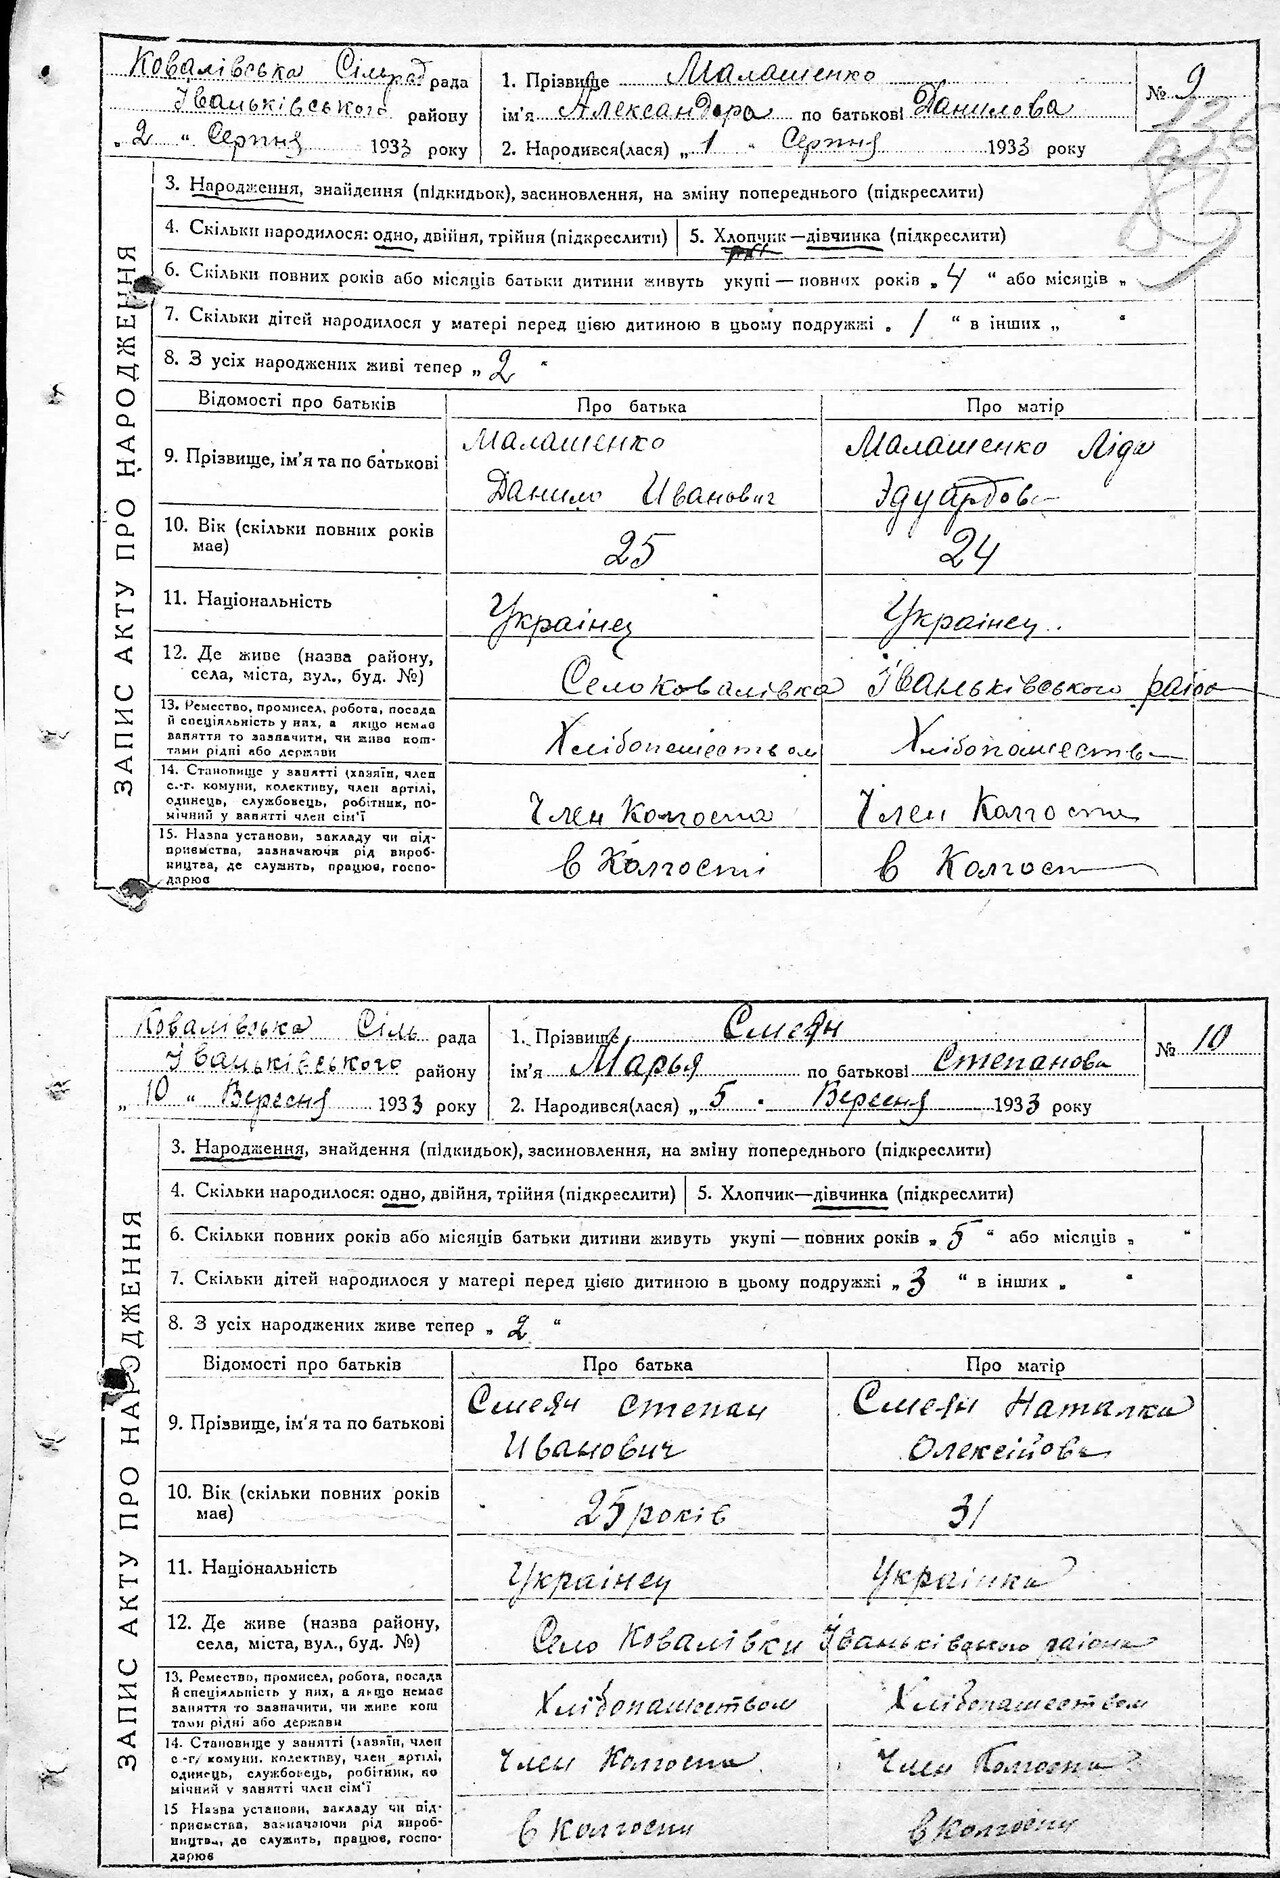 Ковалівська Сільрад рада
Іваньківського району
„2 “ Серпня 1933 року
1. Прізвище Малашенко
ім'я Александра по батькові Данилова
2. Народився(лася) „1 “ Серпня 1933 року
№ 9
136
ЗАПИС АКТУ ПРО НАРОДЖЕННЯ
3. Народження, знайдення (підкидьок), засиновлення, на зміну попереднього (підкреслити)
4. Скільки народилося: одно, двійня, трійня (підкреслити) 5. Хлопчик—дівчинка (підкреслити)
6. Скільки повних років або місяців батьки дитини живуть укупі — повних років „ 4 “ або місяців „
7. Скільки дітей народилося у матері перед цією дитиною в цьому подружжі „ 1 “ в інших „ “
8. З усіх народжених живі тепер „ 2 “
Відомості про батьків Про батька Про матір
9. Прізвище, ім'я та по батькові
Малашенко
Данило Иванович
Малашенко Ліда
Эдуардов
10. Вік (скільки повних років
має)
25 24
11. Національність Украінец Украінец.
12. Де живе (назва району,
села, міста, вул., буд. №)
Село Ковалівка Іваньківського раіо
13. Ремество, промисел, робота, посада
й спеціяльність у них, а якщо немає
заняття то зазначити, чи живе кош-
тами рідні або держави
Хлібопашеством Хлібопашеств
14. Становище у занятті (хазяїн, член
с.-г. комуни, колективу, член артілі,
одинець, службовець, робітник, по-
мічний у занятті член сім'ї
Член Колгоспа Член Колгоспа
15. Назва установи, закладу чи під-
приємства, зазначаючи рід вироб-
ництва, де служить, працює, госпо-
дарює
в Колгоспі в Колгосп
Ковалівська Сіль рада
Іваньківського району
„10 “ Вересня 1933 року
1. Прізвище Смеян
ім'я Марья по батькові Степанова
2. Народився(лася) „5 “ Вересня 1933 року
№ 10
ЗАПИС АКТУ ПРО НАРОДЖЕННЯ
3. Народження, знайдення (підкидьок), засиновлення, на зміну попереднього (підкреслити)
4. Скільки народилося: одно, двійня, трійня (підкреслити) 5. Хлопчик—дівчинка (підкреслити)
6. Скільки повних років або місяців батьки дитини живуть укупі — повних років „ 5 “ або місяців „ “
7. Скільки дітей народилося у матері перед цією дитиною в цьому подружжі „ 3 “ в інших „ “
8. З усіх народжених живе тепер „ 2 “
Відомості про батьків Про батька Про матір
9. Прізвище, ім'я та по батькові
Смеян Степан
Иванович
Смеян Наталка
Олексійова
10. Вік (скільки повних років
має)
25 років 31
11. Національність Украінец Украінка
12. Де живе (назва району,
села, міста, вул., буд. №)
Село Ковалівки Іваньківського раіона
13. Ремество, промисел, робота, посада
й спеціяльність у них, а якщо немає
заняття то зазначити, чи живе кош
тами рідні або держави
Хлібопашеством Хлібопашеством
14. Становище у занятті (хазяїн, член
с.-г. комуни, колективу, член артілі,
одинець, службовець, робітник, по
мічний у занятті член сім'ї
Член Колгоспа Член Колгоспа
15 Назва установи, закладу чи під-
приємства, зазначаючи рід вироб-
ництва, де служить, працює, госпо-
дарює
в Колгоспи в Колгоспи